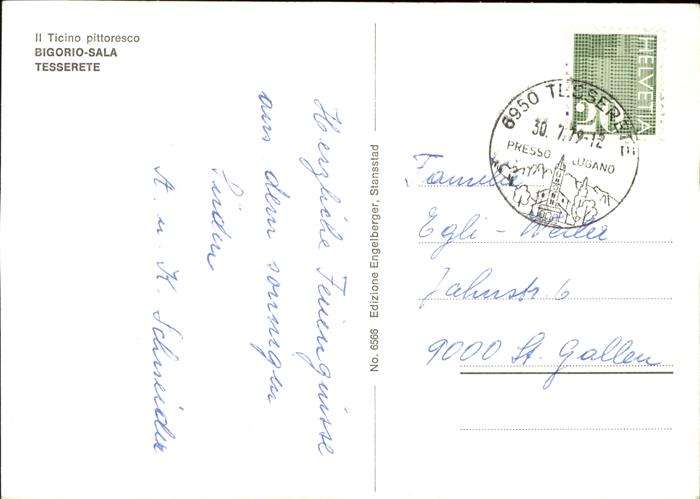 Il Ticino pittoresco
BIGORIO-SALA
TESSERETE
Herzliche Feriengrüsse
aus dem sonnigen
Süden
A. u. K. Schneider
No. 6566 Edizione Engelberger, Stansstad
HELVETIA
6950 TESSERETE
30.7.79-12
PRESSO LUGANO
Familie
Egli-Weiler
Jahnstr. 6
9000 St. Gallen